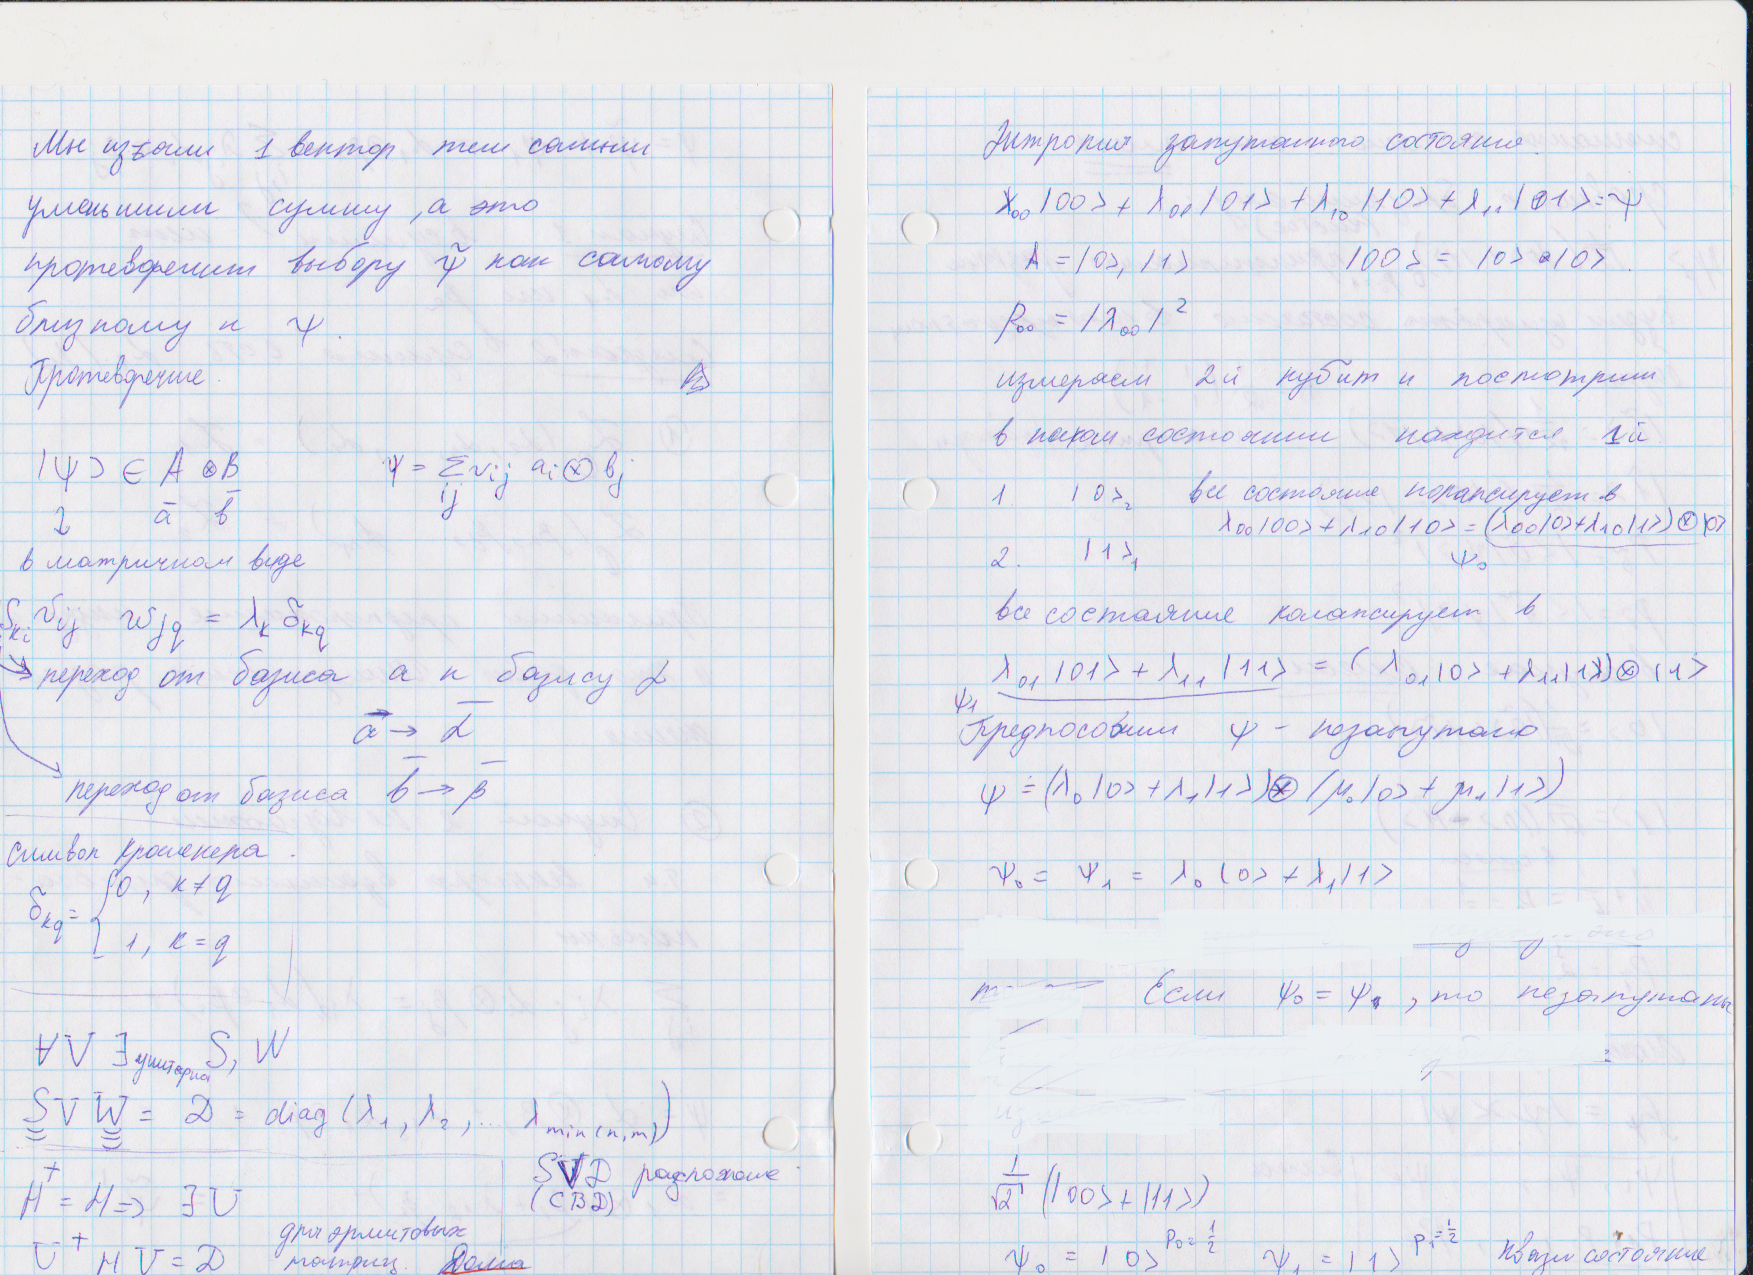 Мы избали 1 вектор тем самым
уменьшили сумму, а это
противоречит выбору ψ̃ как самому
близкому к ψ.
Противоречие.
|ψ> ∈ A ⊗ B    ψ = Σ vij ai ⊗ bj
ij
ā b̄
в матричном виде
Ski vij wjq = λk δkq
переход от базиса a к базису α
a → α
переход от базиса b → β
символ кронекера.
δkq = { 0, k ≠ q
1, k = q
∀V ∃ унитарна S, W
S V W = D = diag (λ1, λ2, ... λmin(n,m))
SVD разложение
(СВД)
H⁺ = H => ∃ U
для эрмитовых
U⁺ H U = D    матриц. Дома
Энтропия запутанного состояния.
λ00|00> + λ01|01> + λ10|10> + λ11|01> = ψ
A = |0>, |1>    |00> = |0> ⊗ |0>.
p00 = |λ00|²
измеряем 2й кубит и посмотрим
в каком состоянии находится 1й
1    |0>2    все состояние коллапсирует в
λ00|00> + λ10|10> = (λ00|0> + λ10|1>) ⊗ |0>
2.    |1>1    ψ0
все состояние колапсирует в
λ01|01> + λ11|11> = (λ01|0> + λ11|1>) ⊗ |1>
ψ1
Предположим ψ - незапутано
ψ = (λ0|0> + λ1|1>) ⊗ (μ0|0> + μ1|1>)
ψ0 = ψ1 = λ0|0> + λ1|1>
Если ψ0 = ψ1, то незапутаны
1/√2 (|00> + |11>)
ψ0 = |0> p0 = 1/2    ψ1 = |1> p1 = 1/2    Квази состояние